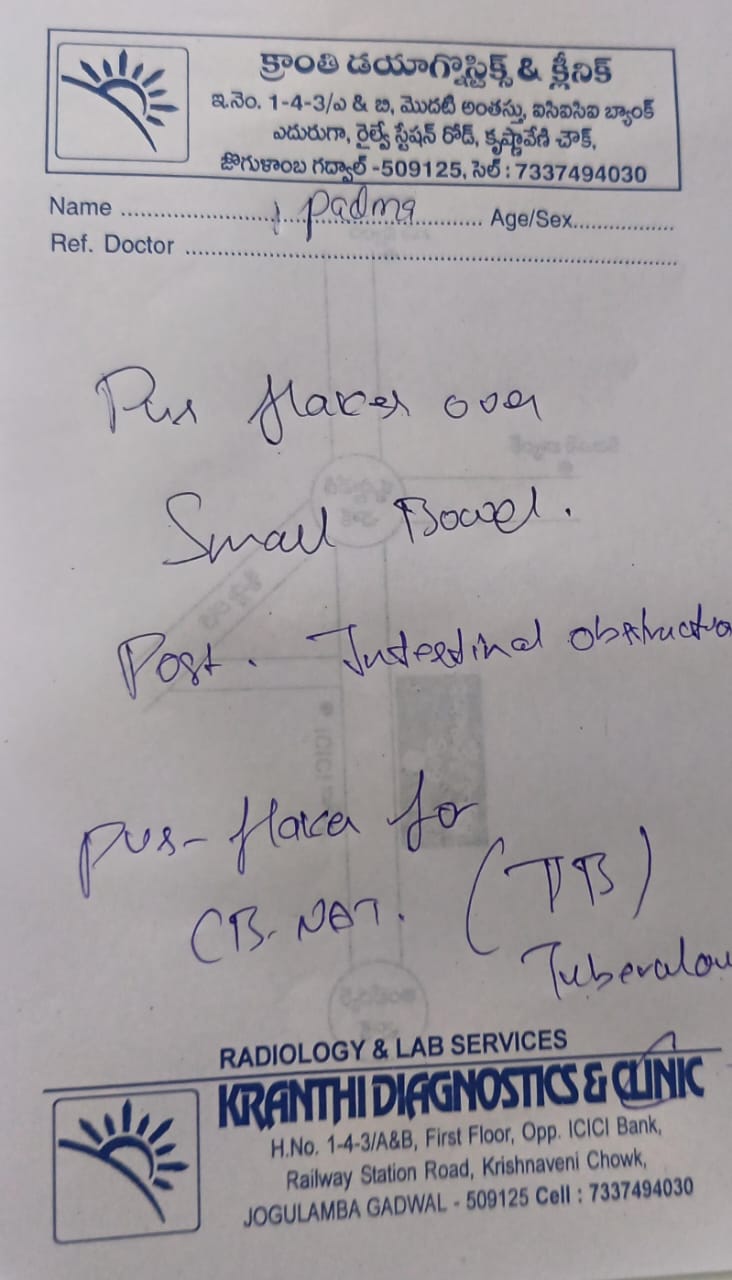 క్రాంతి డయాగ్నొస్టిక్స్ & క్లినిక్
ఇ.నెం. 1-4-3/ఎ & బి, మొదటి అంతస్తు, ఐసిఐసిఐ బ్యాంక్
ఎదురుగా, రైల్వే స్టేషన్ రోడ్, కృష్ణావేణి చౌక్,
జొగుళాంబ గద్వాల్ -509125, సెల్ : 7337494030
Name ........ Padma ........ Age/Sex........
Ref. Doctor ........
Pus flakes over
Small Bowel.
Post. Intestinal obstructio
pus-flakes for
CB-NAT. (TB)
RADIOLOGY & LAB SERVICES
KRANTHI DIAGNOSTICS & CLINIC
H.No. 1-4-3/A&B, First Floor, Opp. ICICI Bank,
Railway Station Road, Krishnaveni Chowk,
JOGULAMBA GADWAL - 509125 Cell : 7337494030